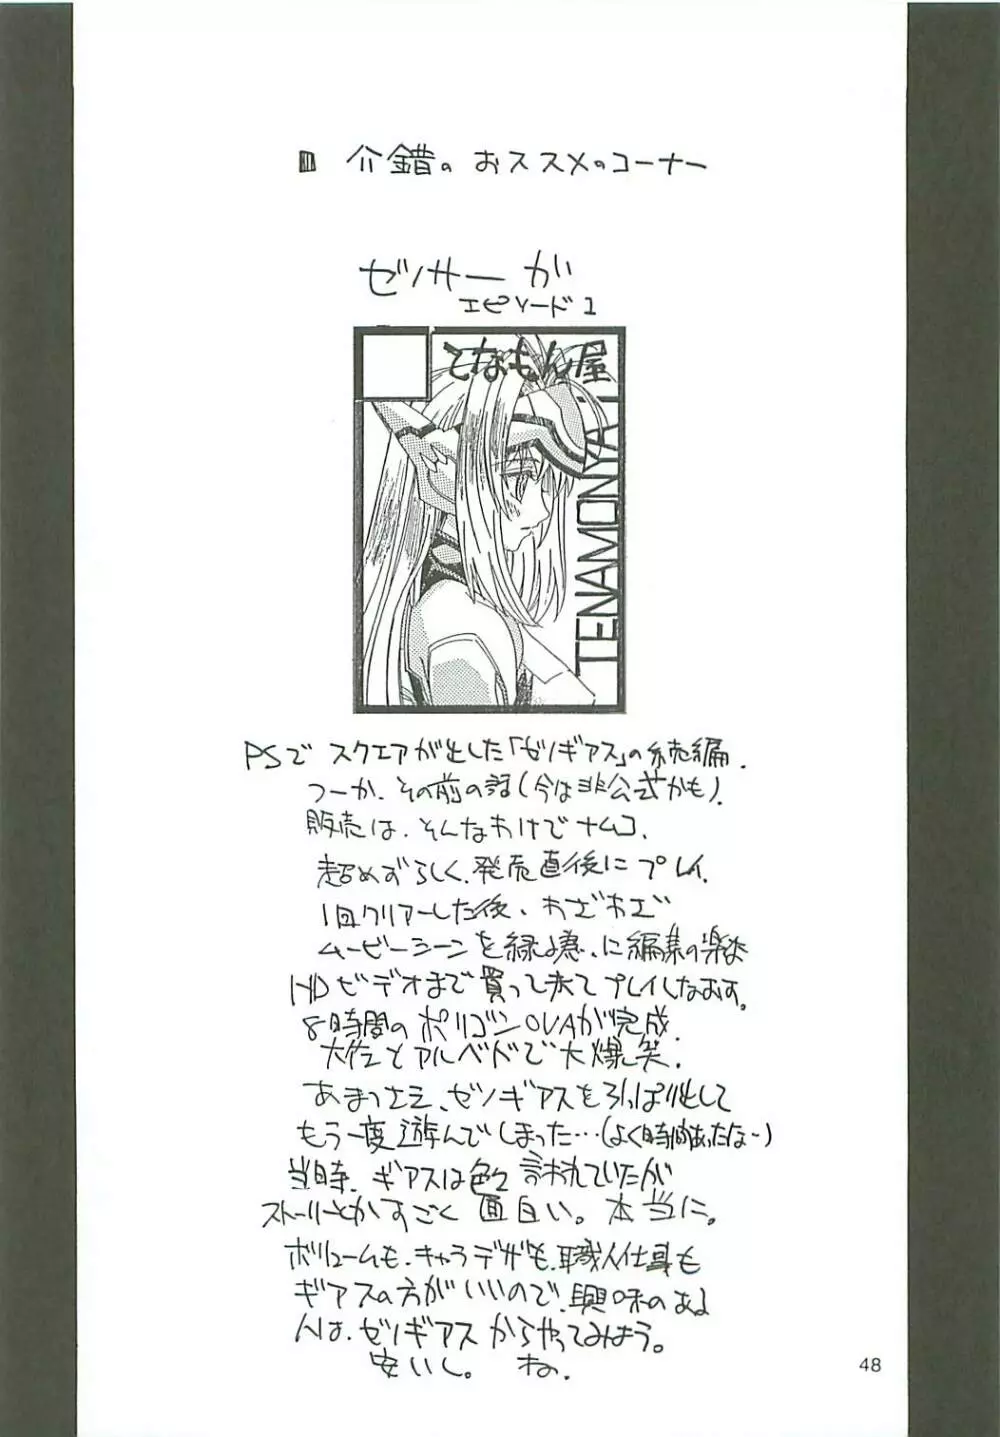 介錯の おススメのコーナー
ゼノサーガ
エピソード1
てなもん屋
TENAMONYA
PSで スクエアが出した「ゼノギアス」の続編.
つーか、その前の話(今は非公式かも).
販売は、そんなわけでナムコ.
超めずらしく、発売直後に プレイ.
1回クリアーした後、わざわざ
ムービーシーンを録る為、に編集の楽な
HDビデオまで買って来てプレイしなおす。
8時間のポリゴンOVAが完成.
大佐とアルベドで大爆笑.
あまつさえ、ゼノギアスをひっぱり出して
もう一度遊んでしまった…(よく時間あったなー)
当時、ギアスは色々言われていたが
ストーリーとかすごく 面白い。本当に。
ボリュームも、キャラデザも、職人仕事も
ギアスの方がいいので、興味のある
人は、ゼノギアスからやってみよう。
安いし。 ね.
48